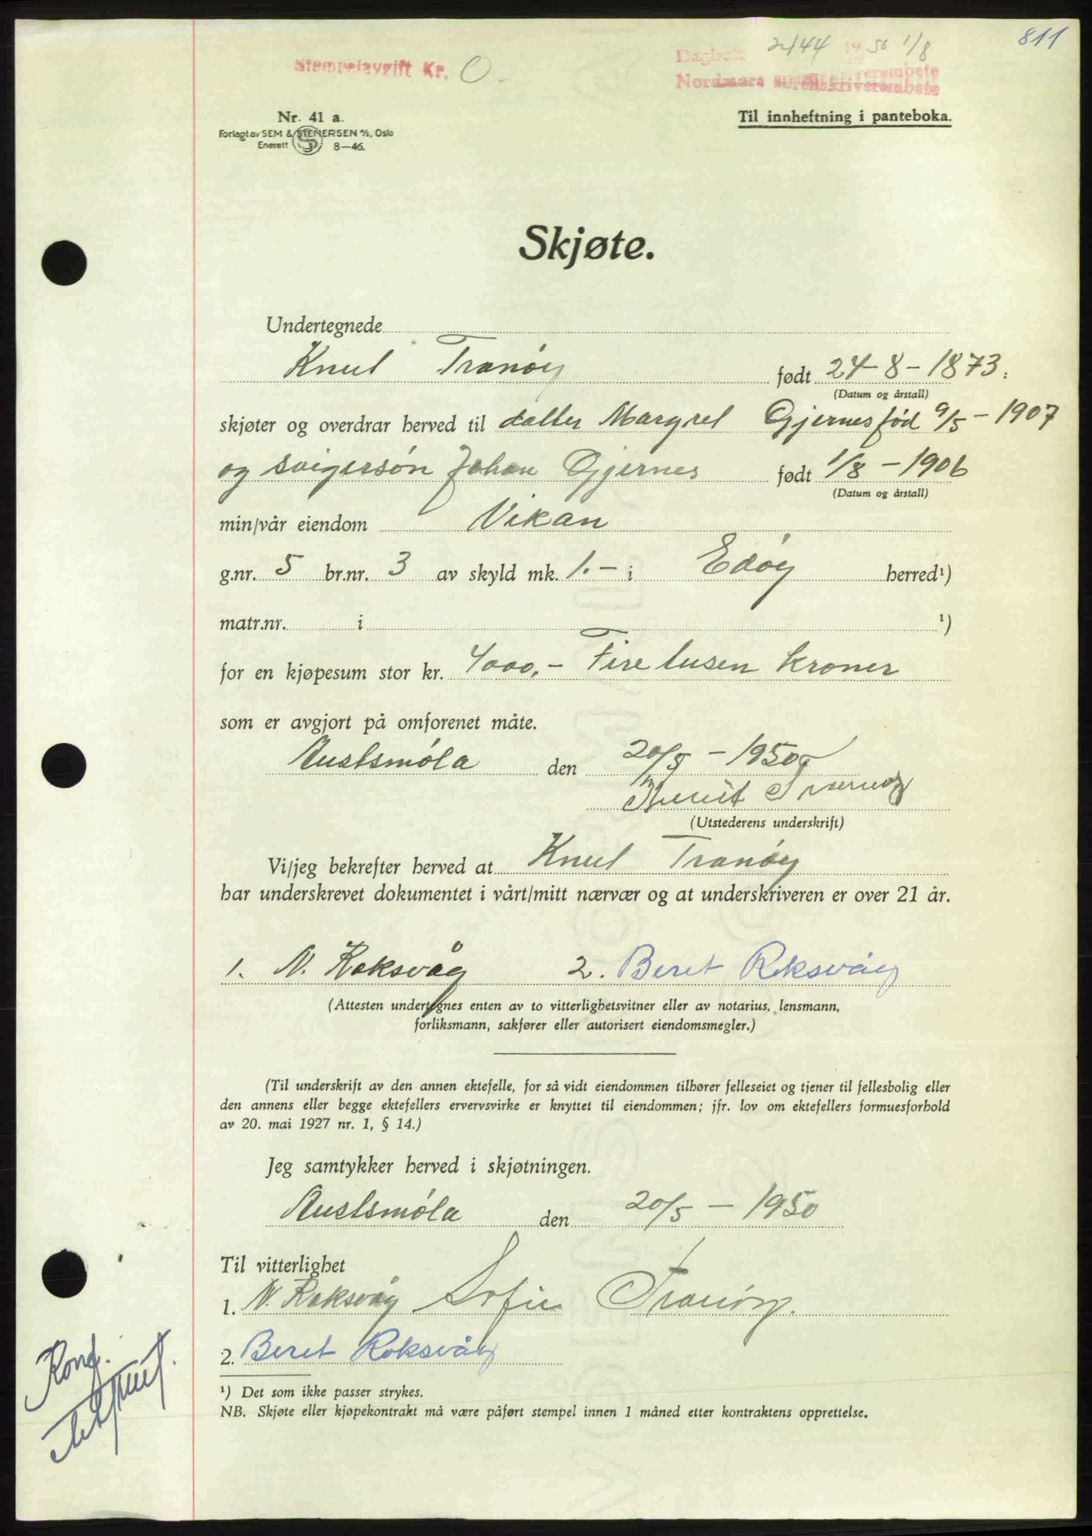 811
Dagbok 2144 1950 1/8
Stempelavgift Kr. 0.-
Nordmøre sorenskriverembete
Nr. 41 a.
Forlagt av SEM & STENERSEN A/S, Oslo
Enerett 8—46.
Til innheftning i panteboka.
Skjøte.
Undertegnede
Knut Tranøy født 24-8-1873.
(Datum og årstall)
skjøter og overdrar herved til datter Margret Gjernes fød 9/5-1907
og svigersøn Johan Gjernes født 1/8-1906
(Datum og årstall)
min/vår eiendom Vikan
g.nr. 5 br.nr. 3 av skyld mk. 1.- i Edøy herred¹)
matr.nr. i ¹)
for en kjøpesum stor kr. 4000,- Fire tusen kroner
som er avgjort på omforenet måte.
Austsmøla den 20/5-1950
Knut Tranøy
(Utstederens underskrift)
Vi/jeg bekrefter herved at Knut Tranøy
har underskrevet dokumentet i vårt/mitt nærvær og at underskriveren er over 21 år.
1. N. Roksvåg 2. Beret Roksvåg
(Attesten undertegnes enten av to vitterlighetsvitner eller av notarius, lensmann,
forliksmann, sakfører eller autorisert eiendomsmegler.)
(Til underskrift av den annen ektefelle, for så vidt eiendommen tilhører felleseiet og tjener til fellesbolig eller
den annens eller begge ektefellers ervervsvirke er knyttet til eiendommen; jfr. lov om ektefellers formuesforhold
av 20. mai 1927 nr. 1, § 14.)
Jeg samtykker herved i skjøtningen.
Austsmøla den 20/5-1950
Til vitterlighet
1. N. Roksvåg Sofie Tranøy.
2. Beret Roksvåg
Konf.
¹) Det som ikke passer strykes.
NB. Skjøte eller kjøpekontrakt må være påført stempel innen 1 måned etter kontraktens opprettelse.